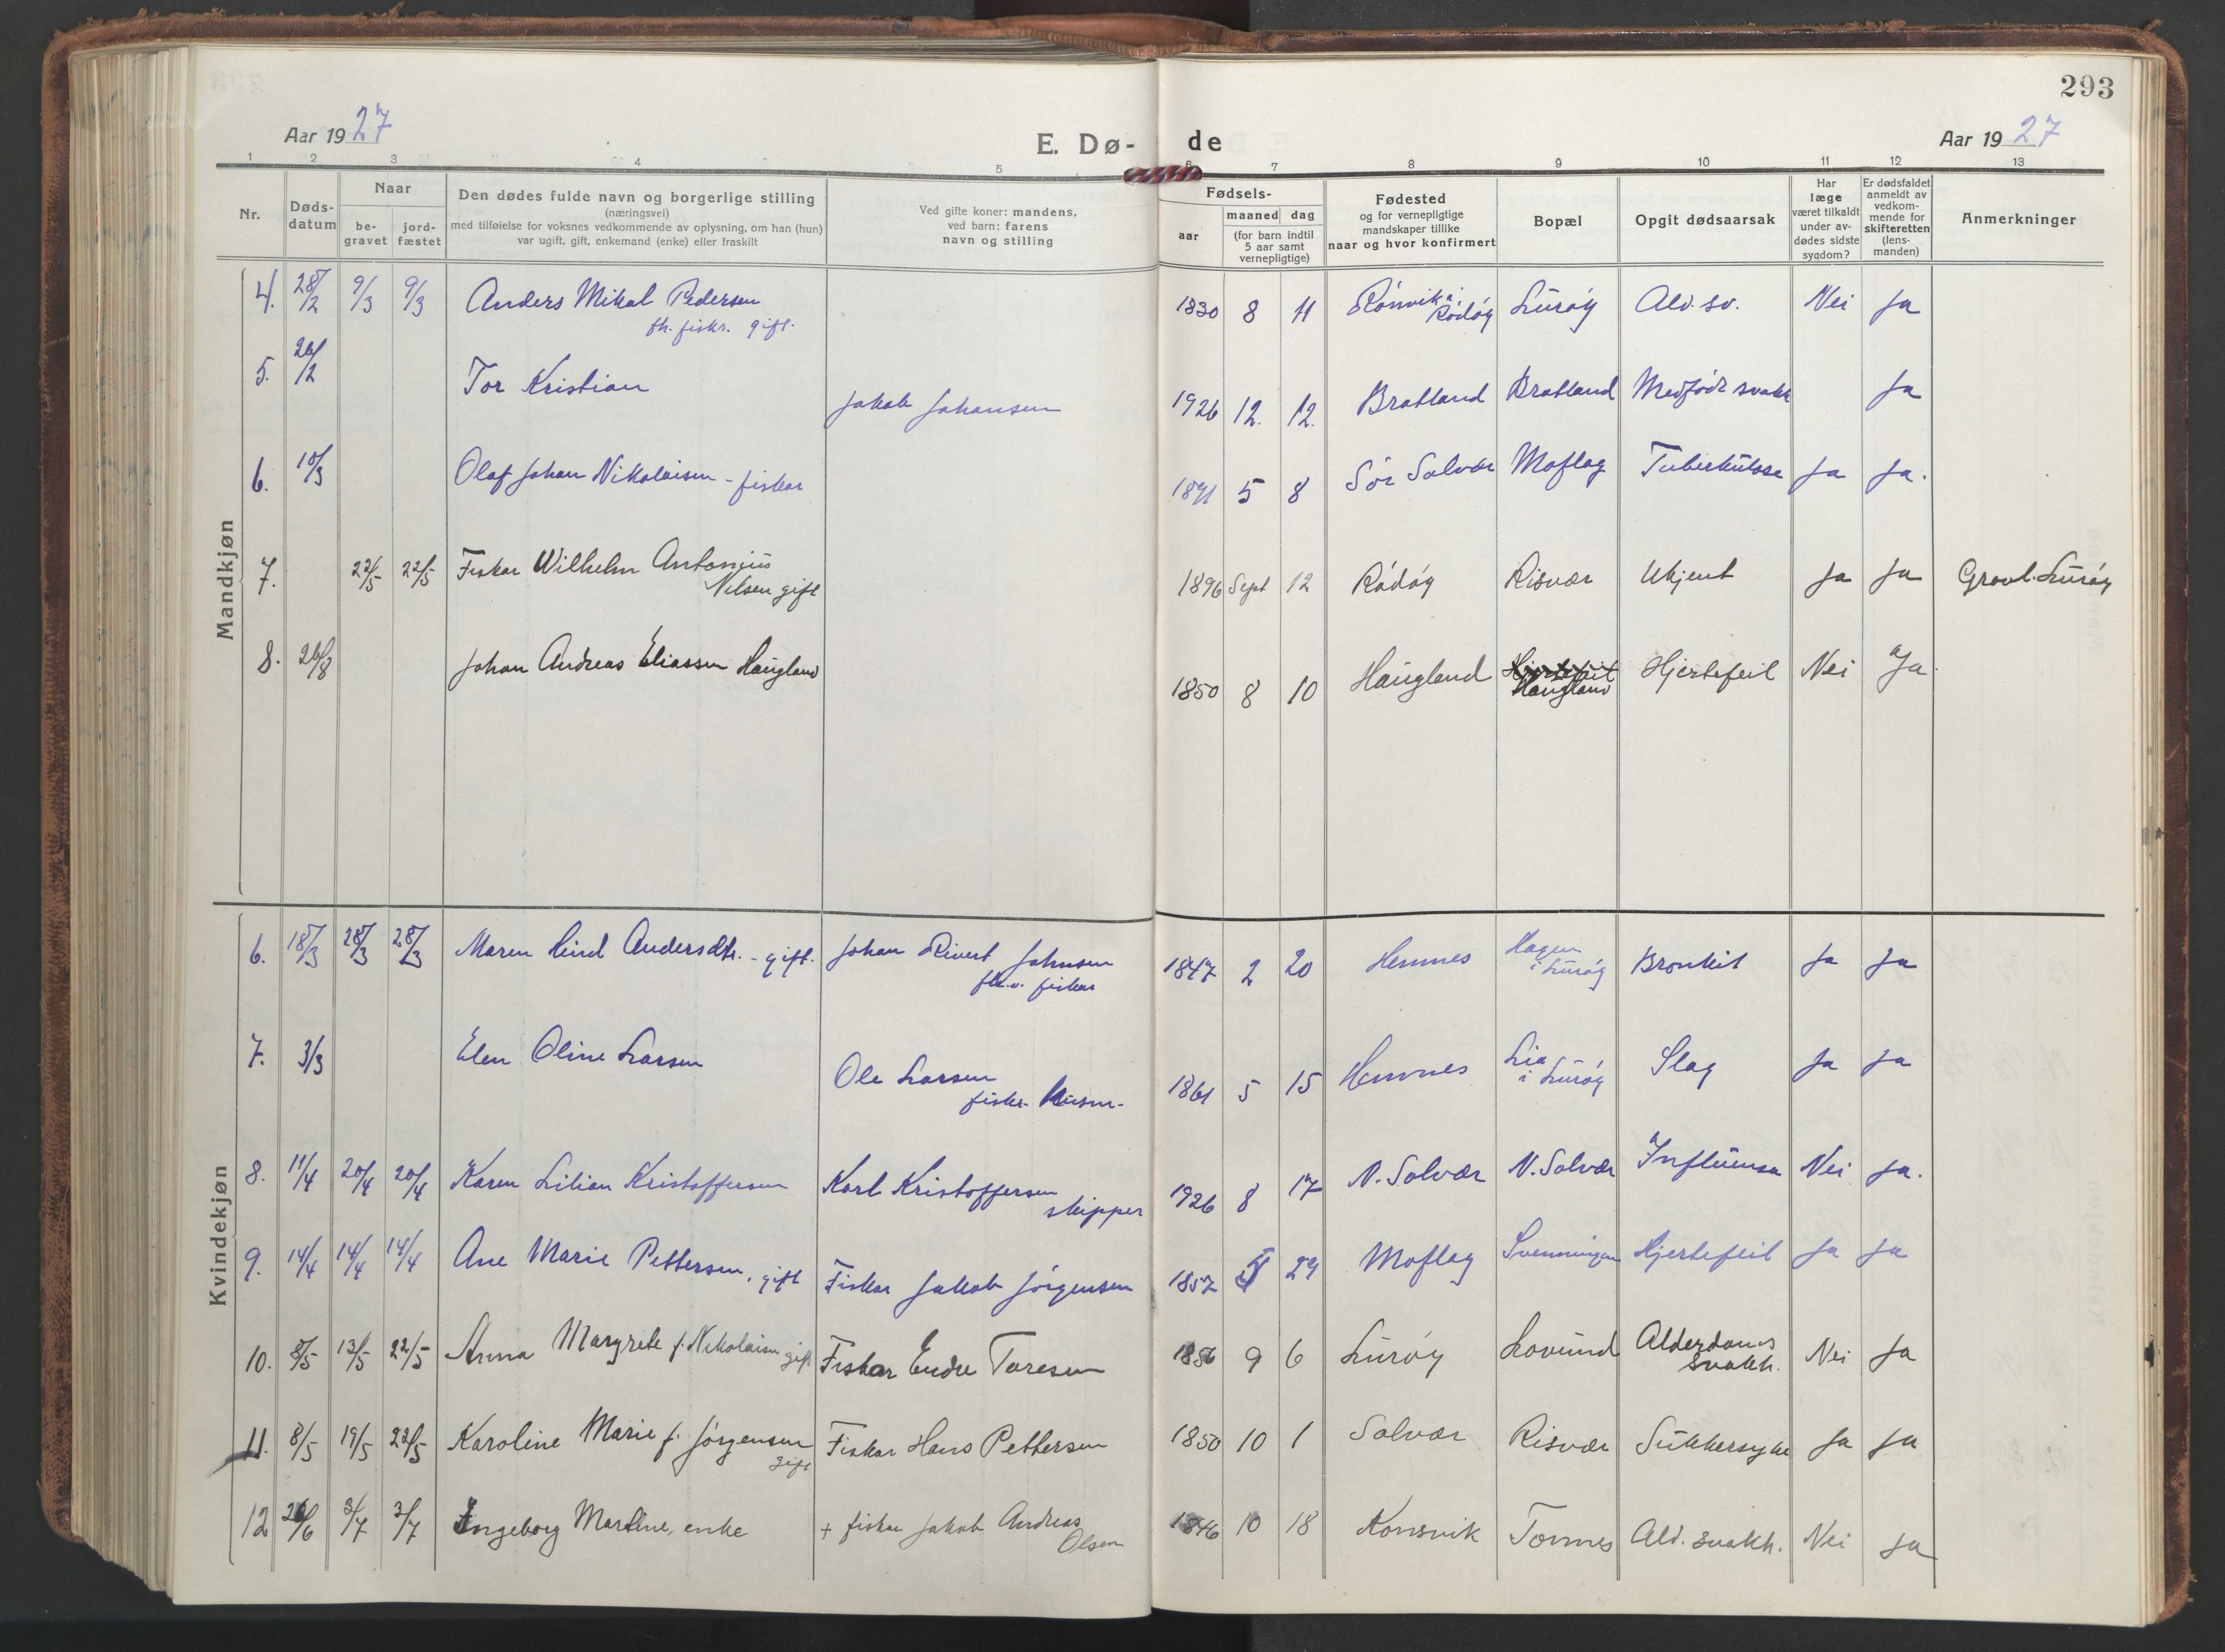 293
Aar 1927
E. Dø-
de
Aar 1927
1 2 3 4 5 6 7 8 9 10 11 12 13
Nr.
Døds-
datum
Naar
be-
gravet
jord-
fæstet
Den dødes fulde navn og borgerlige stilling
(næringsvei)
med tilføielse for voksnes vedkommende av oplysning, om han (hun)
var ugift, gift, enkemand (enke) eller fraskilt
Ved gifte koner: mandens,
ved barn: farens
navn og stilling
Fødsels-
aar
maaned dag
(for barn indtil
5 aar samt
vernepligtige)
Fødested
og for vernepligtige
mandskaper tillike
naar og hvor konfirmert
Bopæl
Opgit dødsaarsak
Har
læge
været tilkaldt
under av-
dødes sidste
sygdom?
Er dødsfaldet
anmeldt av
vedkom-
mende for
skifteretten
(lens-
manden)
Anmerkninger
Mandkjøn
4. 28/2 9/3 9/3 Anders Mikal Pedersen 1830 8 11 Rönvik i Lurøy Ald. sv. Nei Ja
fh. fisker. gift. Rödöy
5. 26/2 Tor Kristian Jakob Johansen 1926 12. 12. Bratland Bratland Medfödt svakh Ja
6. 10/3 Olaf Johan Nikolaisen - fiskar 1891 5 8 Sör Solvær Moflag Tuberkulose Ja Ja.
7. 22/5 22/5 Fiskar Wilhelm Antonius 1896 Sept 12 Rödöy Risvær Ukjent Ja Ja Gravl. Lurøy
Nilsen gift
8. 26/8 Johan Andreas Eliassen Haugland 1850 8 10 Haugland Hjertefeil Hjertefeil Nei Ja.
Haugland
Kvindekjøn
6. 18/3 28/3 28/3 Maren Andersdtr. - gift. Johan Rivert Johnsen 1847 2 20 Hemnes Hagen Bronkit Ja Ja
fiskar i Lurøy
7. 3/3 Elen Oline Larsen Ole Larsen 1861 5 15 Hemnes Lia Slag Ja Ja
fisker Husm- i Lurøy
8. 11/4 20/4 20/4 Karen Lilian Kristoffersen Karl Kristoffersen 1926 8 17 N. Solvær N. Solvær Influensa Nei Ja.
skipper
9. 14/4 14/4 14/4 Ane Marie Pettersen, gift Fiskar Jakob Jörgensen 1857 5 29 Moflag Svenningen Hjertefeil Ja Ja
10. 8/5 13/5 22/5 Anna Margrete f. Nikolaisen gift Fiskar Endre Toresen 1856 9 6 Lurøy Lovund Alderdoms Nei Ja
svakh.
11. 8/5 19/5 22/5 Karoline Marie f. Jörgensen Fiskar Hans Pettersen 1850 10 1 Solvær Risvær Sukkersyke Ja Ja
gift
12 26/6 3/7 3/7 Ingeborg Martine, enke + fiskar Jakob Andreas 1846 10 18 Konsvik Tonnes Ald. svakh. Nei Ja
Olsen